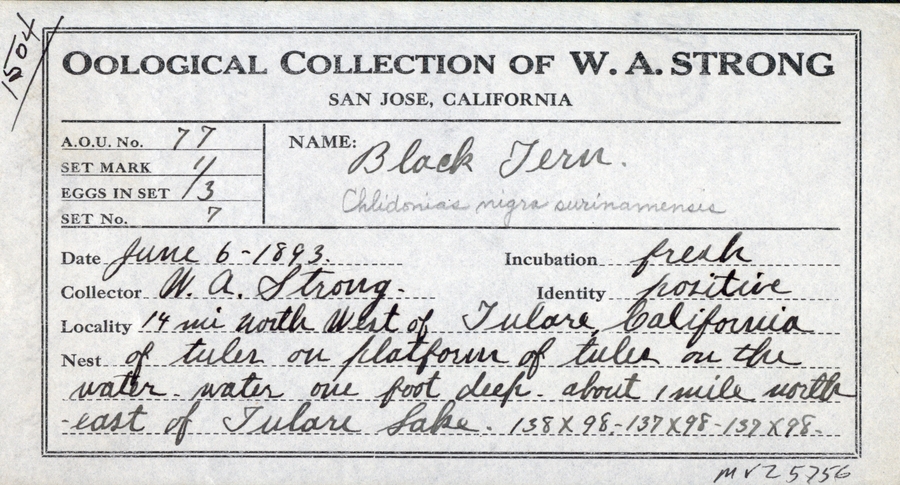 1504
OOLOGICAL COLLECTION OF W. A. STRONG
SAN JOSE, CALIFORNIA
A.O.U. No. 77
SET MARK "/
EGGS IN SET /3
SET No. 7
NAME: Black Tern.
Chlidonias nigra surinamensis
Date June 6-1893.
Incubation fresh
Collector W. A. Strong.
Identity positive
Locality 14 mi north West of Tulare, California
Nest of tules on platform of tules on the
water. water one foot deep. about 1 mile north
-east of Tulare Lake. 138 X 98.-137 X 98-137 X 98.
MVZ 5756